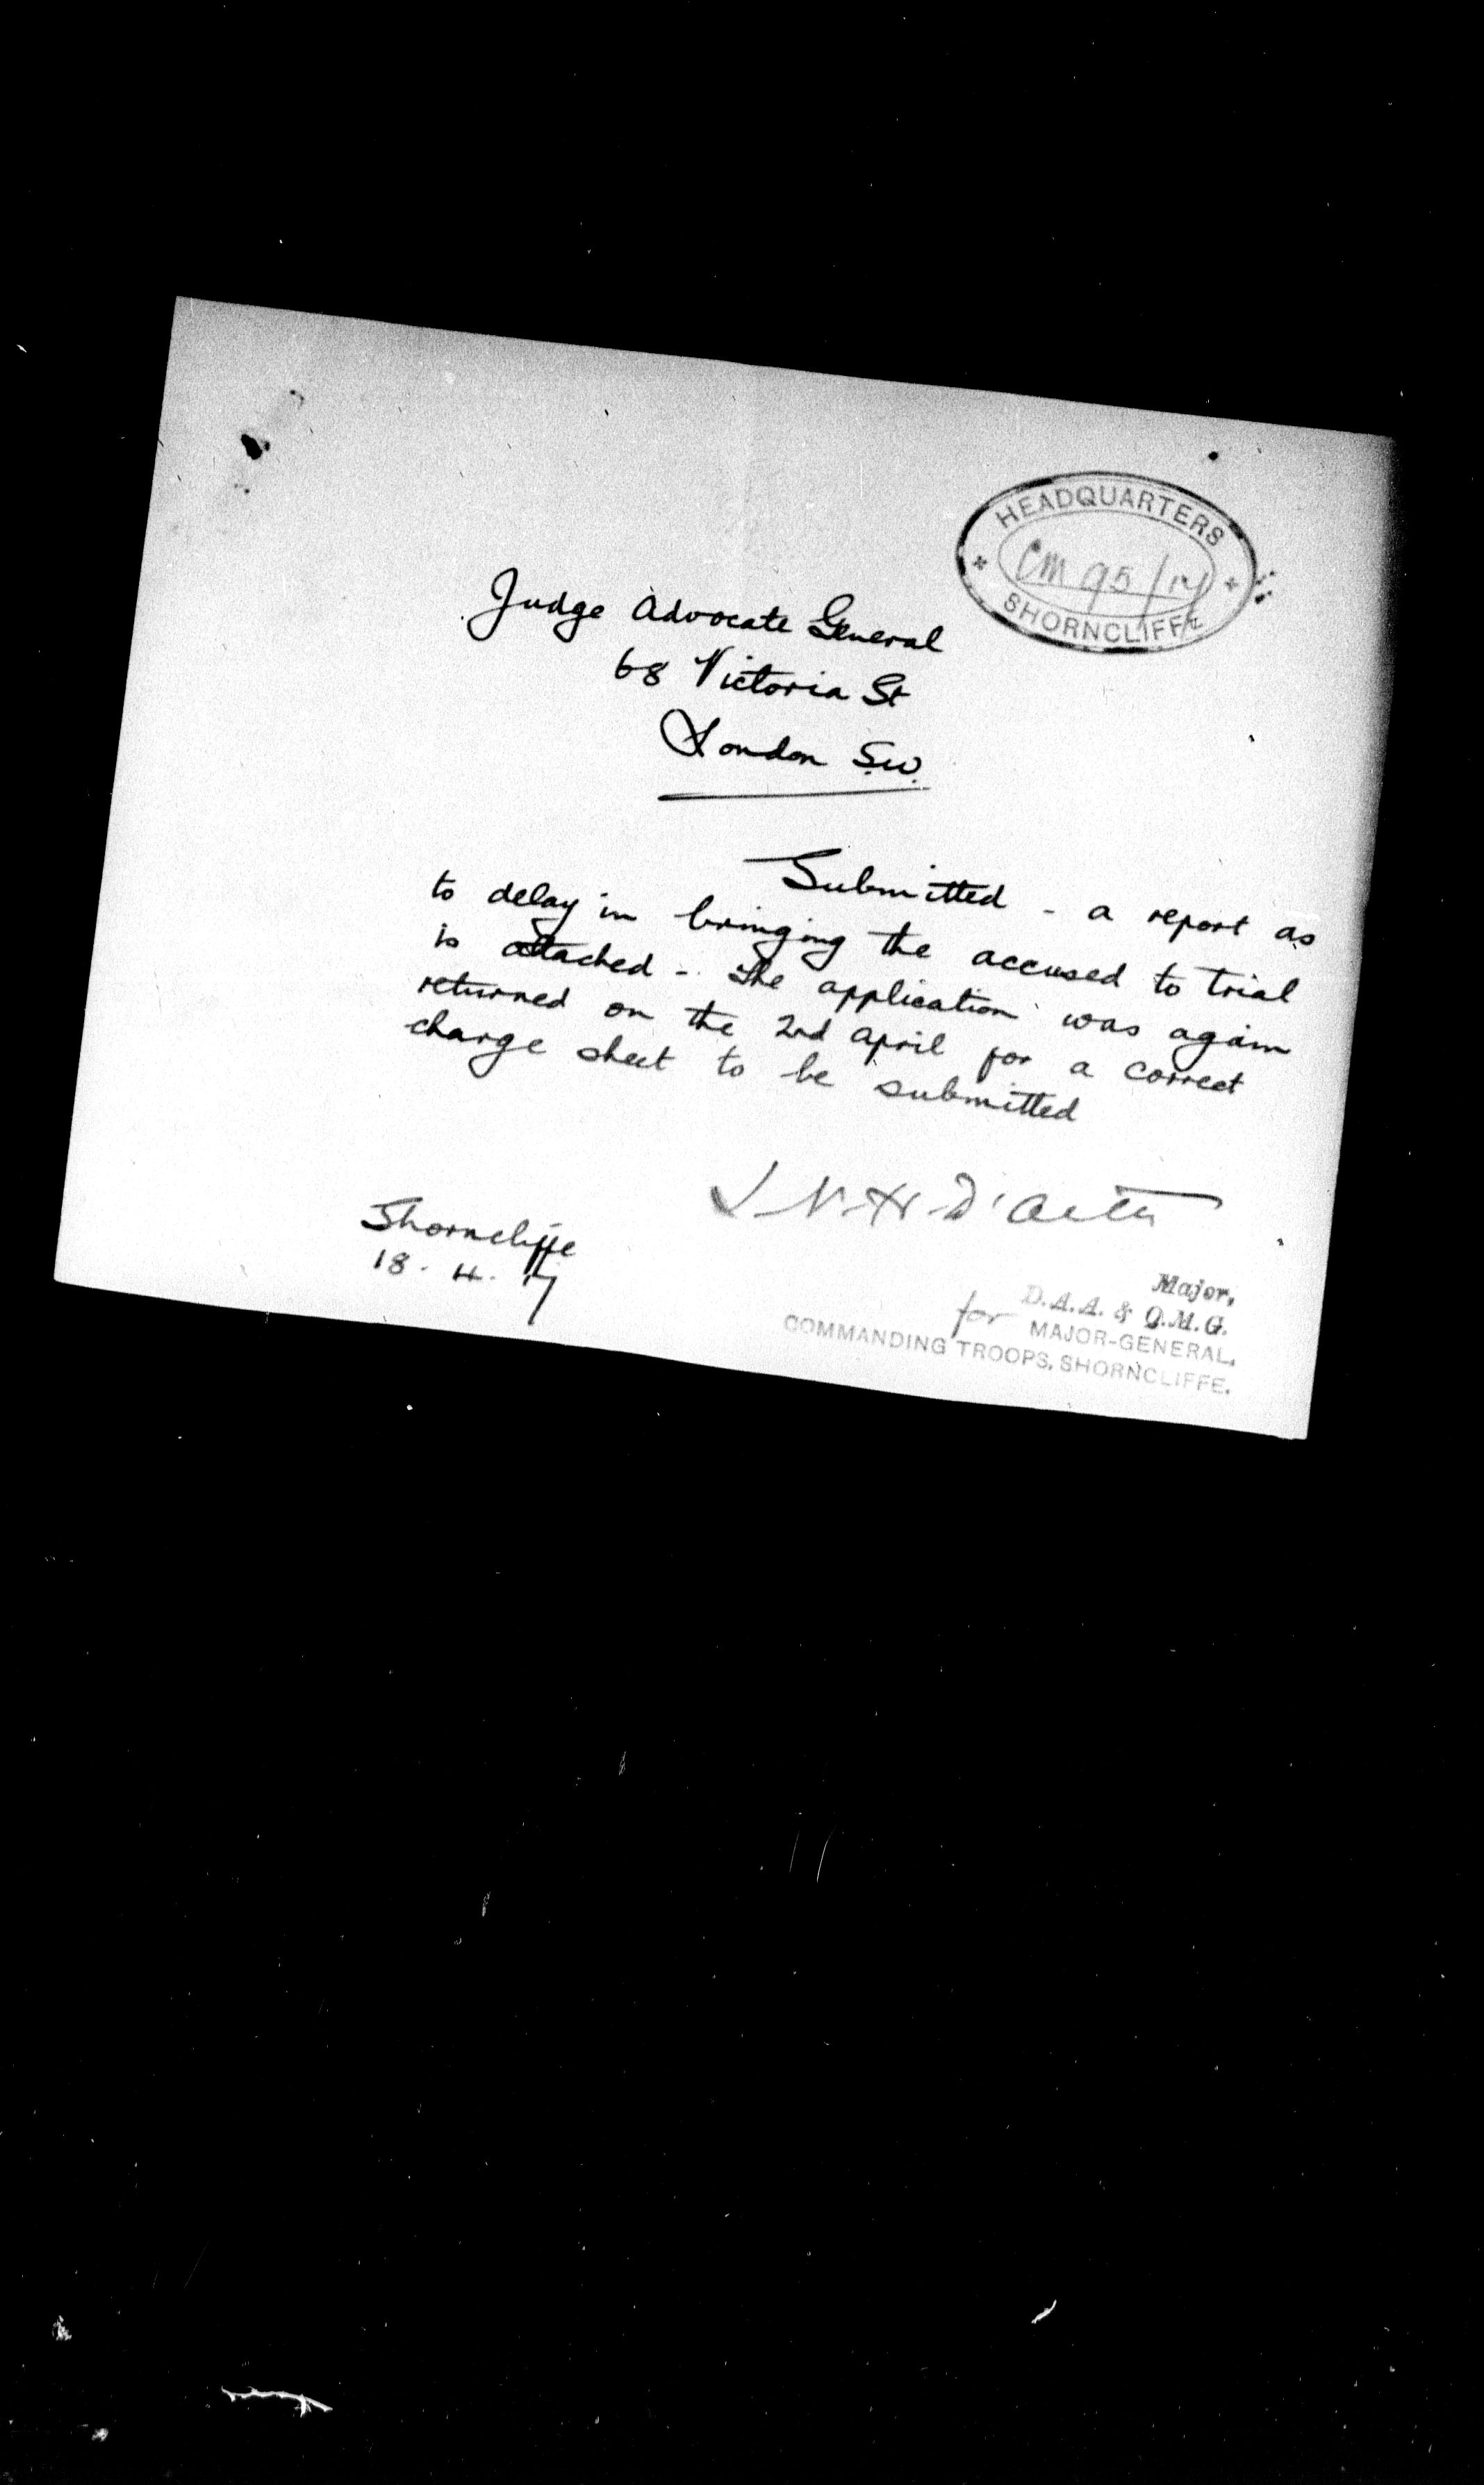 HEADQUARTERS
CM 95/17
SHORNCLIFFE
Judge Advocate General
68 Victoria St
London S.W.
Submitted - a report as
to delay in bringing the accused to trial
is attached - The application was again
returned on the 2nd April for a correct
charge sheet to be submitted
Shorncliffe
18. 4. 17
Major,
D.A.A. & Q.M.G.
for MAJOR-GENERAL,
COMMANDING TROOPS, SHORNCLIFFE.